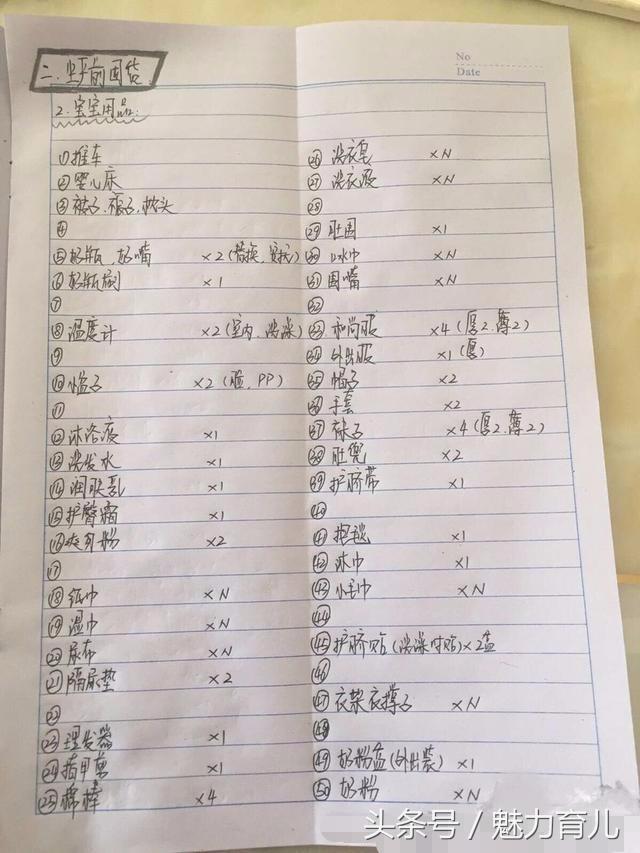 二.生产前囤货
No
Date
2.宝宝用品:
①推车
②婴儿床
③被子、褥子、枕头
④
⑤奶瓶、奶嘴 ×2(替换,安抚)
⑥奶瓶刷 ×1
⑦
⑧温度计 ×2(室内、洗澡)
⑨
⑩小盆子 ×2(脸、PP)
⑪
⑫沐浴液 ×1
⑬洗发水 ×1
⑭润肤乳 ×1
⑮护臀膏 ×1
⑯爽身粉 ×2
⑰
⑱纸巾 ×N
⑲湿巾 ×N
⑳尿布 ×N
㉑隔尿垫 ×2
㉒
㉓理发器 ×1
㉔指甲剪 ×1
㉕棉棒 ×4
㉖洗衣皂 ×N
㉗洗衣液 ×N
㉘
㉙肚围 ×1
㉚口水巾 ×N
㉛围嘴 ×N
㉜
㉝和尚服 ×4(厚2.薄2)
㉞外出服 ×1(厚)
㉟帽子 ×2
㊱手套 ×2
㊲袜子 ×4(厚2.薄2)
㊳肚兜 ×2
㊴护脐带 ×1
㊵
㊶抱毯 ×1
㊷沐巾 ×1
㊸小毛巾 ×N
㊹
㊺护脐贴(洗澡时贴)×2盒
㊻
㊼衣架衣撑子 ×N
㊽
㊾奶粉盒(外出装) ×1
㊿奶粉 ×N
头条号/魅力育儿